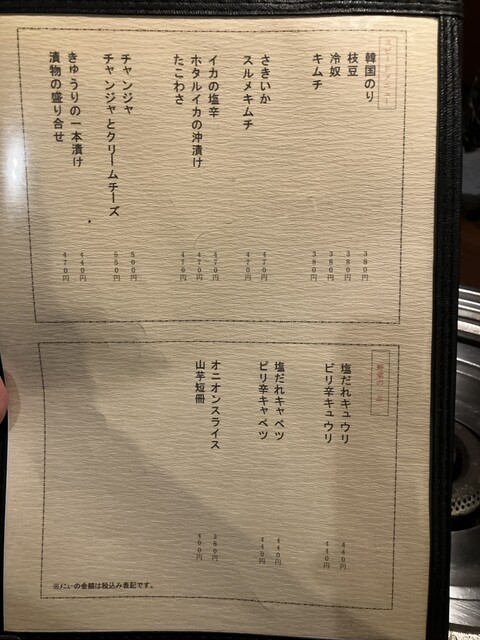 スピードメニュー
韓国のり 380円
枝豆 380円
冷奴 380円
キムチ 380円
さきいか 470円
スルメキムチ 470円
イカの塩辛 470円
ホタルイカの沖漬け 470円
たこわさ 470円
チャンジャ 500円
チャンジャとクリームチーズ 550円
きゅうりの一本漬け 440円
漬物の盛り合せ 470円
塩だれキュウリ 440円
ピリ辛キュウリ 440円
塩だれキャベツ 440円
ピリ辛キャベツ 440円
オニオンスライス 380円
山芋短冊 400円
※メニューの金額は税込み表記です。